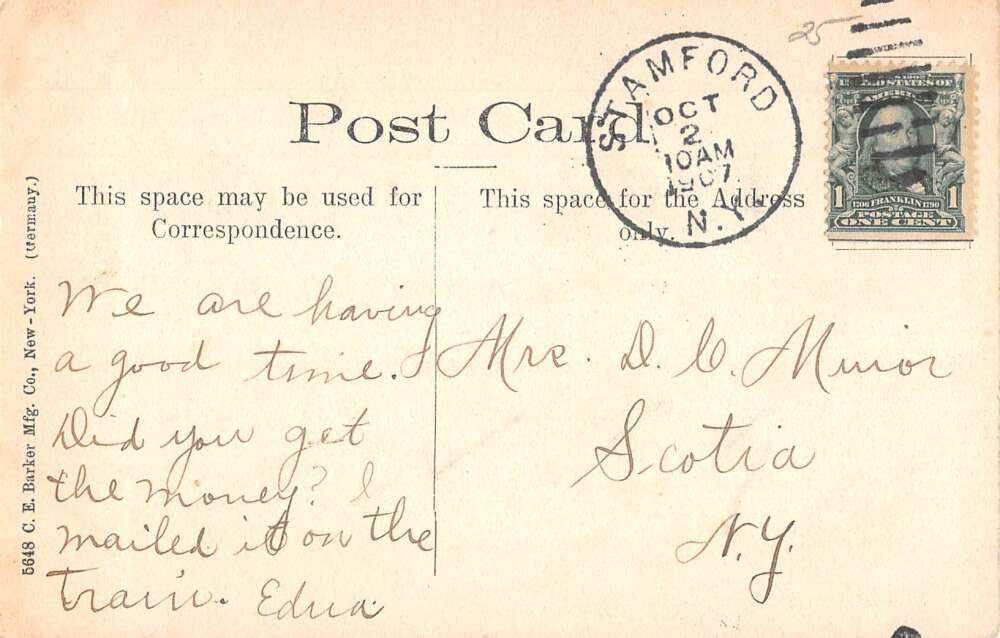 25
Post Card
STAMFORD
OCT
2
10AM
1907
N.Y.
UNITED STATES OF
AMERICA
1 1706 FRANKLIN 1790 1
POSTAGE
ONE CENT
This space may be used for
Correspondence.
This space for the Address
only.
We are having
a good time.
Did you get
the money? I
mailed it on the
train. Edna
Mrs. D. C. Minor
Scotia
N.Y.
5648 C. E. Barker Mfg. Co., New-York. (Germany.)